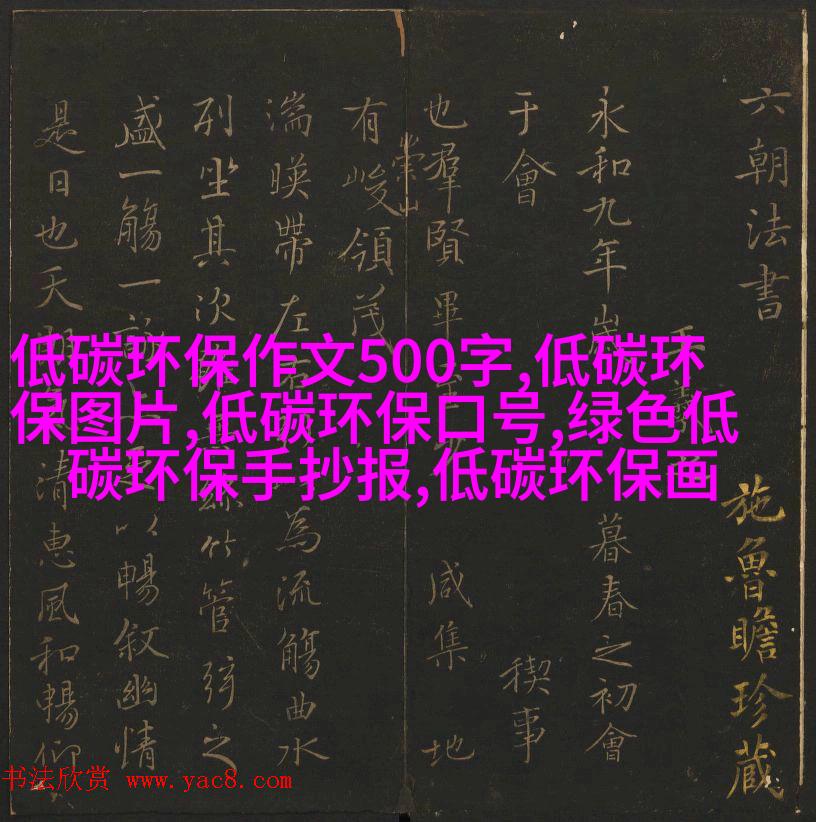 低碳环保作文500字,低碳环
保图片,低碳环保口号,绿色低
碳环保手抄报,低碳环保画
六朝法書
施魯瞻珍藏
永和九年歲暮春之初會
于會稧事
也羣賢畢至咸集地
有崇山峻領茂
湍暎帶左右為流觴曲水
列坐其次絲竹管弦之
盛一觴一詠以暢敘幽情
是日也天清惠風和暢仰
书法欣赏 www.yac8.com